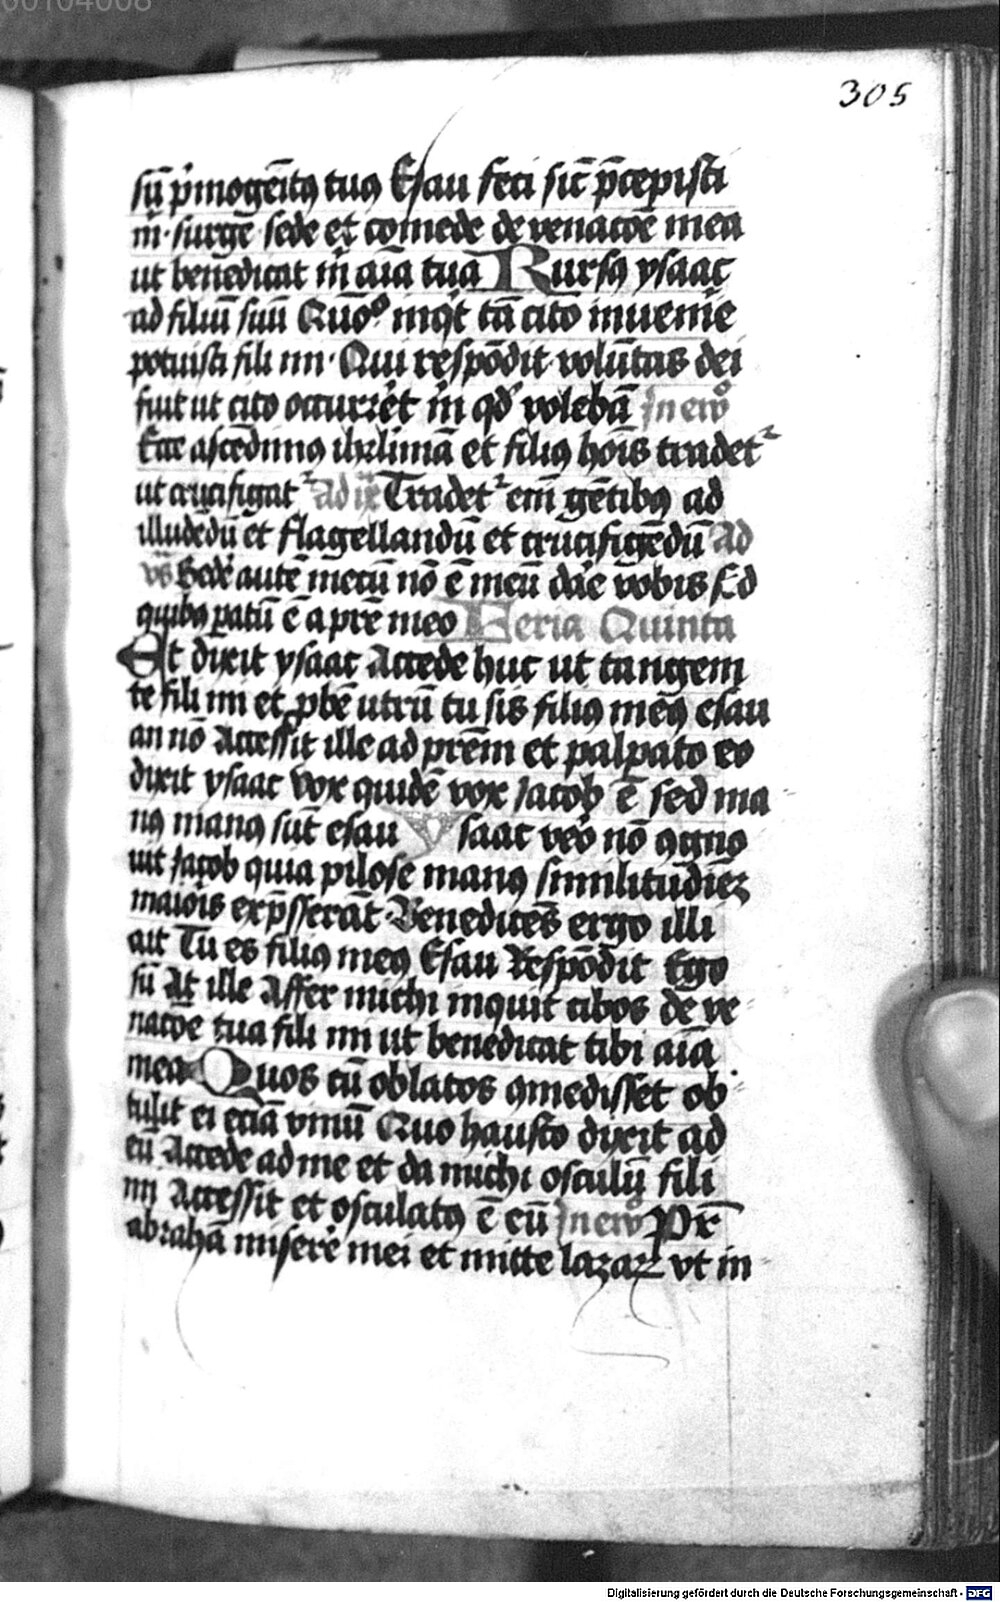 00104008
305
sū p̄mogēitꝯ tuꝯ Esau feci sic̄ p̄cepisti
m̄ · surge sede et comede de venacōe mea
ut benedicat m̄ aīa tua Rursꝯ ysaac
ad filiū suū Quōº inqͥt tā cito inuenīe
potuisti fili mi · Qui respōdit volūtas dei
fuit ut cito occurret m̄ qd̄ volebā In euº
Ecce ascēdimꝯ ihrlimā et filiꝯ hoīs tradet᷑
ut crucifigat᷑ Ad Tradet᷑ em̄ gētibꝯ ad
illudēdū et flagellandū et crucifigēdū Ad
vs̄ Sede autē mecū nō ē meū dāe vobis Sed
quibꝯ patū ē a prē meo Feria Quinta
Et dixit ysaac Accede huc ut tangem
te fili mi et ꝓbē utrū tu sis filiꝯ meꝯ esau
an nō Accessit ille ad prēm et palpato eo
dixit ysaac vox quidē vox Jacob ē sed ma
nꝯ manꝯ sūt esau Ysaac veo nō ꝯgno
uit Jacob quia pilose manꝯ similitudīeꝫ
maiois exp̄sserāt · Benedicēs ergo illi
ait Tu es filiꝯ meꝯ Esau Respōdit Ego
sū At ille Affer michi inquit cibos de ve
nacōe tua fili mi ut benedicat tibi aīa
mea Quos cū oblatos ꝯmedisset ob
tulit ei eciā vinū Quo hausto dixit ad
eū Accede ad me et da michi osculū fili
mi Accessit et osculatꝯ ē eū In euº Pr̄
abrahā miserē mei et mitte lazaꝝ vt in
Digitalisierung gefördert durch die Deutsche Forschungsgemeinschaft - DFG